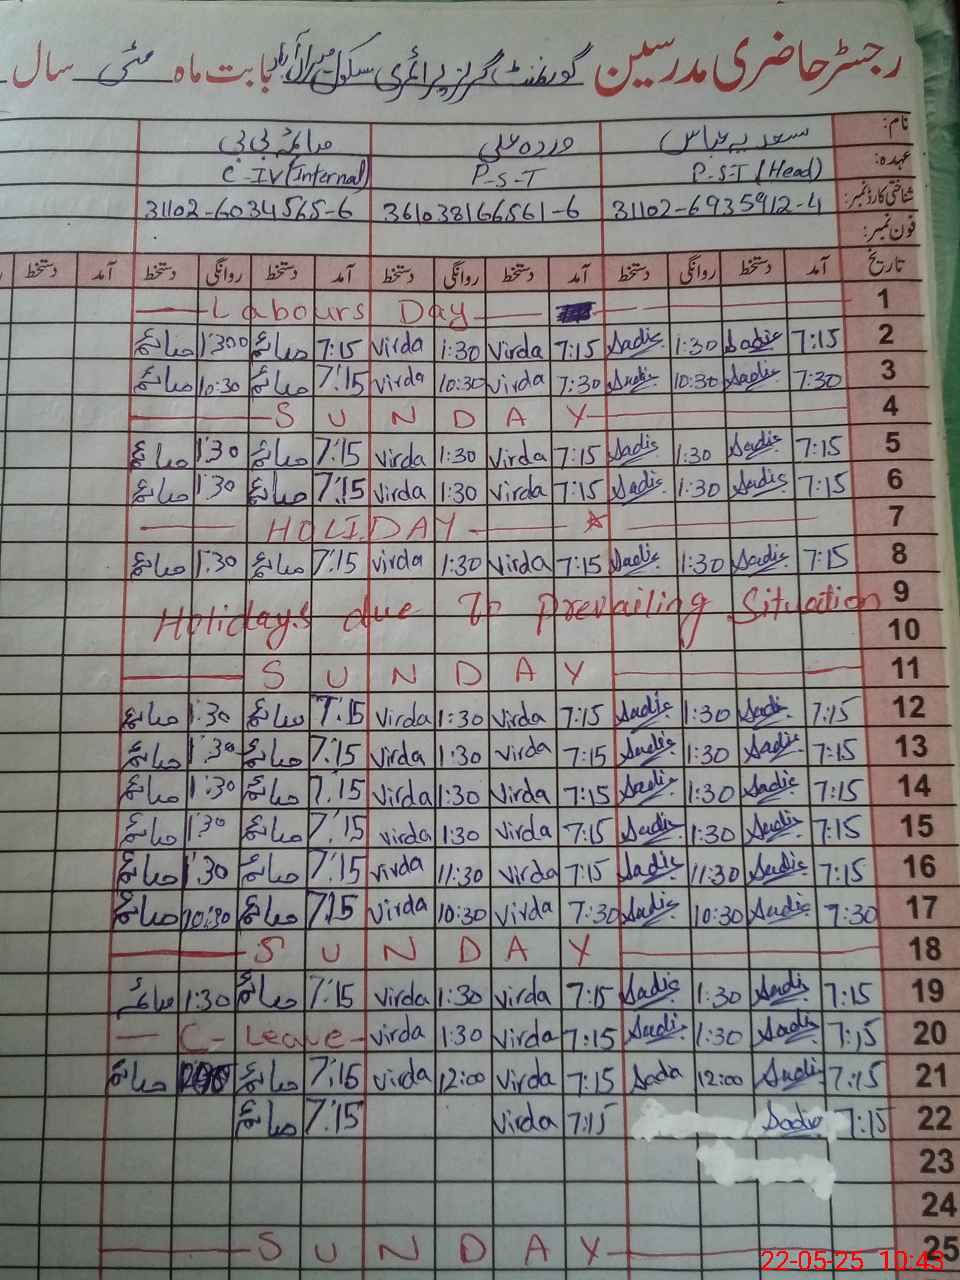 رجسٹر حاضری مدرسین گورنمنٹ گرلز پرائمری سکول میراں آباد بابت ماہ مئی سال
نام: سعدیہ عباس وردہ علی صائمہ بی بی
عہدہ: P-S-T (Head) P-S-T C-IV (Internal)
شناختی کارڈ نمبر: 31102-6935912-4 361038166561-6 31102-6034565-6
فون نمبر:
تاریخ آمد دستخط روانگی دستخط آمد دستخط روانگی دستخط آمد دستخط روانگی دستخط آمد دستخط
1 Labours Day
2 7:15 Sadie 1:30 Sadie 7:15 Virda 1:30 Virda 7:15 صائمہ 1:300 صائمہ
3 7:30 Sadie 10:30 Sadie 7:30 Virda 10:30 Virda 7:15 صائمہ 10:30 صائمہ
4 SUNDAY
5 7:15 Sadie 1:30 Sadie 7:15 Virda 1:30 Virda 7:15 صائمہ 1:30 صائمہ
6 7:15 Sadie 1:30 Sadie 7:15 Virda 1:30 Virda 7:15 صائمہ 1:30 صائمہ
7 HOLIDAY
8 7:15 Sadie 1:30 Sadie 7:15 Virda 1:30 Virda 7:15 صائمہ 1:30 صائمہ
9 Holidays due To Prevailing Situation
10
11 SUNDAY
12 7:15 Sadie 1:30 Sadie 7:15 Virda 1:30 Virda 7:15 صائمہ 1:30 صائمہ
13 7:15 Sadie 1:30 Sadie 7:15 Virda 1:30 Virda 7:15 صائمہ 1:30 صائمہ
14 7:15 Sadie 1:30 Sadie 7:15 Virda 1:30 Virda 7:15 صائمہ 1:30 صائمہ
15 7:15 Sadie 1:30 Sadie 7:15 Virda 1:30 Virda 7:15 صائمہ 1:30 صائمہ
16 7:15 Sadie 11:30 Sadie 7:15 Virda 11:30 Virda 7:15 صائمہ 1:30 صائمہ
17 7:30 Sadie 10:30 Sadie 7:30 Virda 10:30 Virda 7:15 صائمہ 10:30 صائمہ
18 SUNDAY
19 7:15 Sadie 1:30 Sadie 7:15 Virda 1:30 Virda 7:15 صائمہ 1:30 صائمہ
20 7:15 Sadie 1:30 Sadie 7:15 Virda 1:30 Virda C-Leave
21 7:15 Sadie 12:00 Sada 7:15 Virda 12:00 Virda 7:15 صائمہ صائمہ
22 7:15 Sadie 7:15 Virda 7:15 صائمہ
23
24
25 SUNDAY
22-05-25 10:43